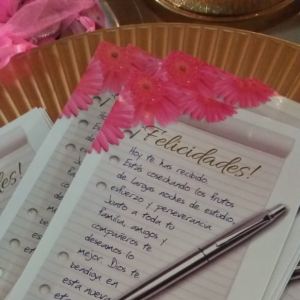 ¡Felicidades!
Hoy te has recibido.
Estás cosechando los frutos
de largas noches de estudio,
esfuerzo y perseverancia.
Junto a toda tu
familia, amigos y
compañeros te
deseamos lo
mejor. Dios te
bendiga en
esta nueva
et
des!